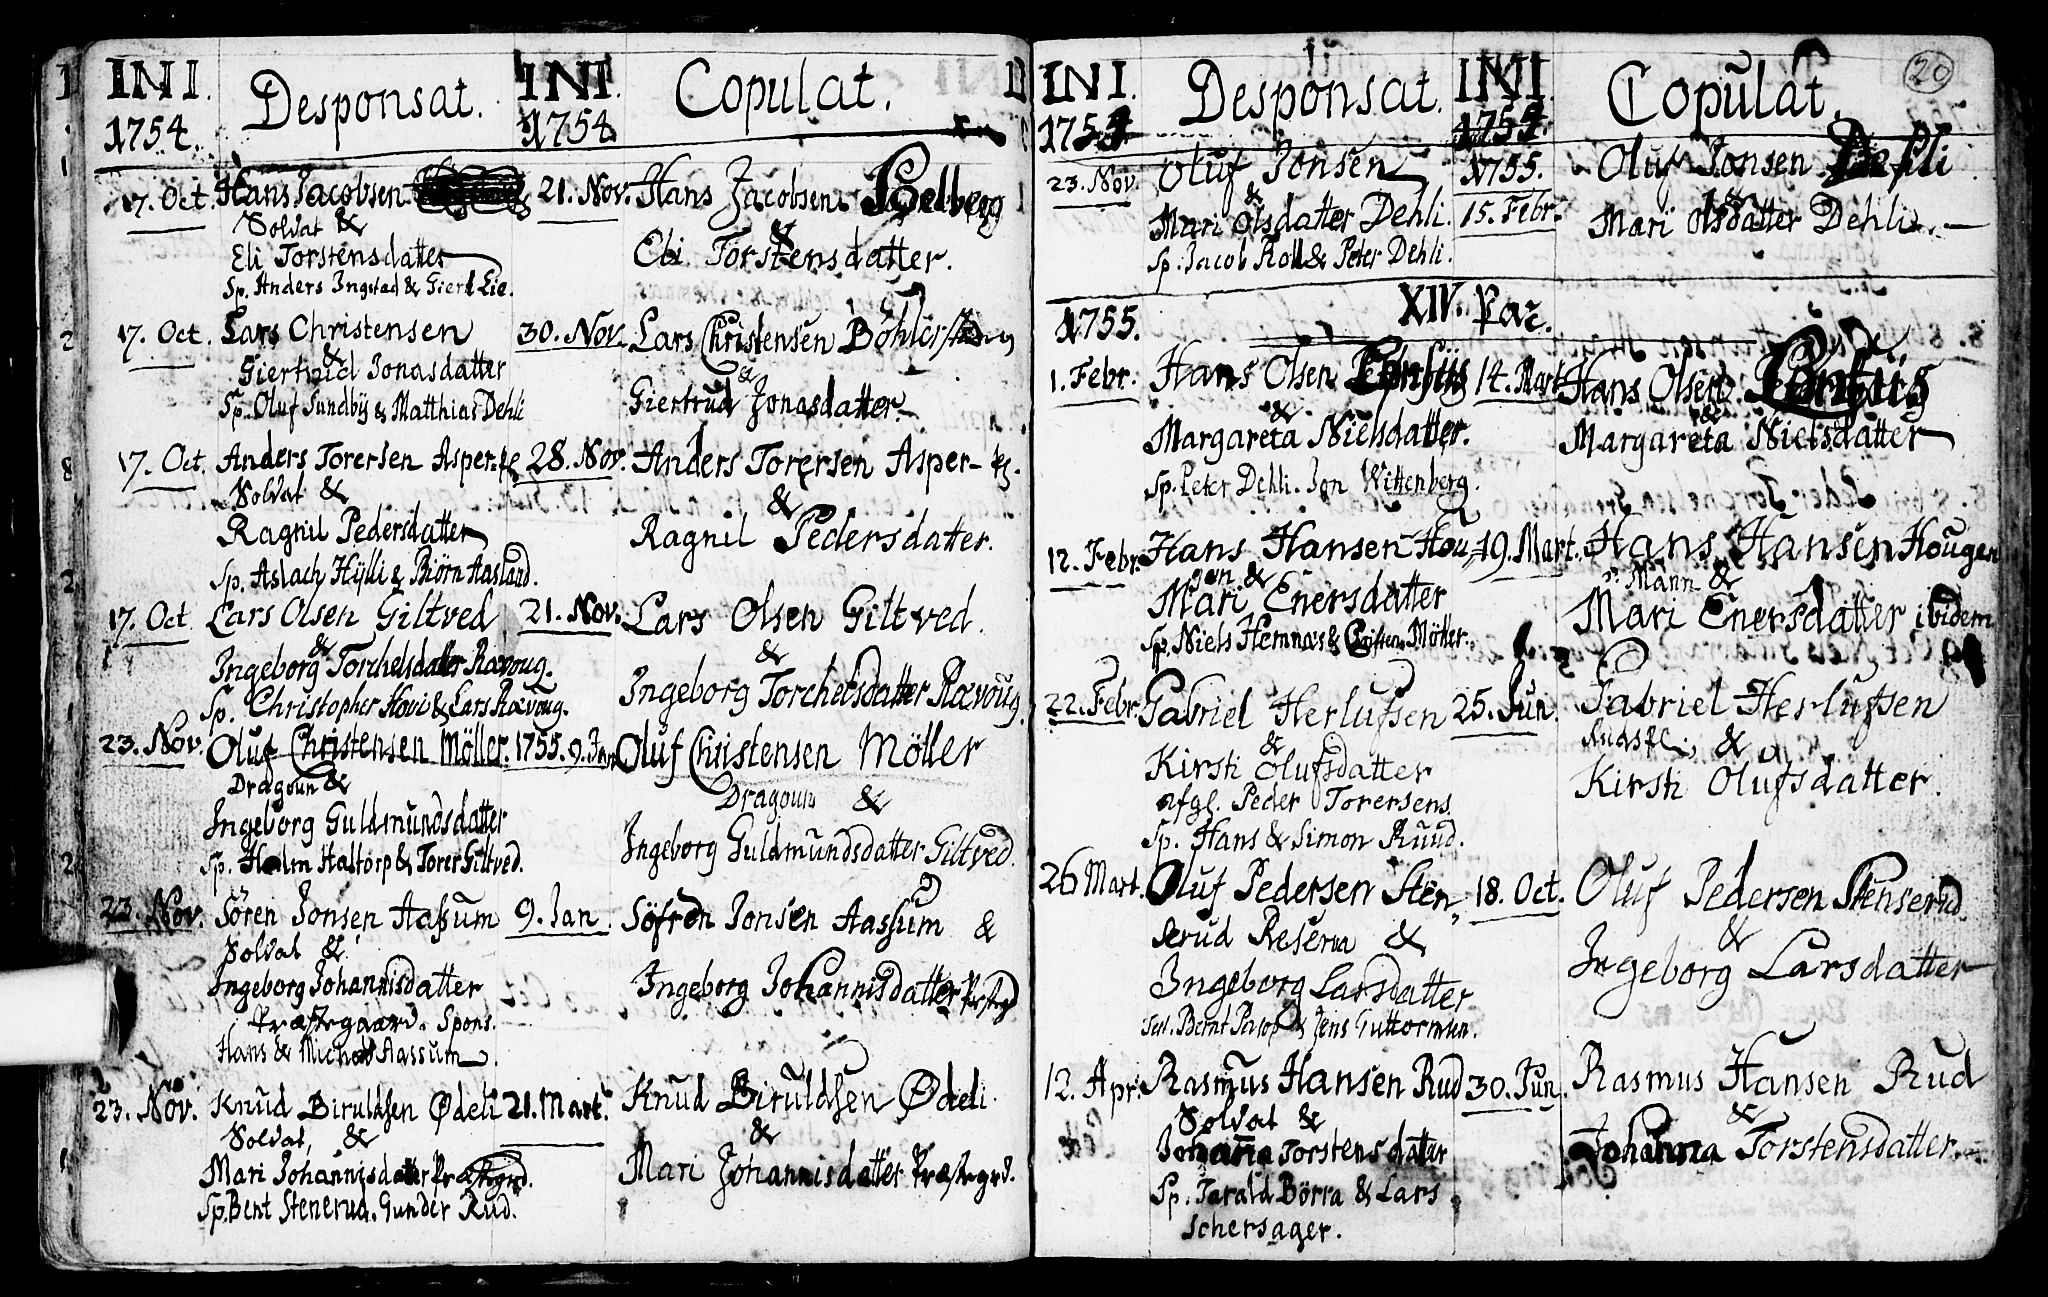 INI.
1754.
Desponsat.
INI.
1754.
Copulat.
17. Oct. Hans Jacobsen
Soldat &
Eli Torstensdatter
Sp. Anders Ingstad & Giert Lie.
21. Nov. Hans Jacobsen Helberg
&
Eli Torstensdatter.
17. Oct. Lars Christensen
&
Giertrud Jonasdatter
Sp. Oluf Sundbÿ & Matthias Dehli
30. Nov. Lars Christensen
&
Giertrud Jonasdatter
17. Oct. Anders Torersen Asper
Soldat &
Ragnil Pedersdatter
Sp. Aslach Hÿlli & Biörn Aasland.
28. Nov. Anders Torersen Asper-
&
Ragnil Pedersdatter.
17. Oct Lars Olsen Giltved
&
Ingeborg Torchelsdatter Rævoug.
Sp. Christopher Hovi & Lars Rævoug.
21. Nov. Lars Olsen Giltved.
&
Ingeborg Torchelsdatter Rævoug.
23. Nov. Oluf Christensen Möller.
Dragoun &
Ingeborg Guldmundsdatter
Sp. Halm Haltorp & Torer Giltved.
1755. 9. Jan Oluf Christensen Möller
Dragoun &
Ingeborg Guldmundsdatter Giltved.
23. Nov. Sören Jonsen Aassum
Soldat &
Ingeborg Johannisdatter
Præstegaard. Spons.
Hans & Michel Aassum.
9. Jan Söfren Jonsen Aassum &
Ingeborg Johannisdatter
23. Nov. Knud Biruldsen Ødeli
Soldat, &
Mari Johannisdatter Præstegrd.
Sp. Bent Stenerud. Gunder Rud.
21. Mart. Knud Biruldsen Ødeli.
&
Mari Johannisdatter Præstegrd.
20
INI.
1754
Desponsat.
INI.
1754.
Copulat.
23. Nov. Oluf Jonsen
&
Mari Olsdatter Dehli.
Sp. Jacob Roll & Peter Dehli.
1755.
15. Febr. Oluf Jonsen Dehli
&
Mari Olsdatter Dehli.
XIV. Par.
1755.
1. Febr. Hans Olsen
&
Margareta Nielsdatter.
Sp. Peter Dehli. Jon Wittenberg.
14. Mart Hans Olsen
&
Margareta Nielsdatter
12. Febr. Hans Hansen Hou-
gen &
Mari Enersdatter
Sp. Niels Hemnæs & Christen Möller.
19. Mart. Hans Hansen Hougen
Mann &
Mari Enersdatter ibidem
22. Febr. Gabriel Herlufsen
&
Kirsti Olufsdatter
afgl. Peder Torersens.
Sp. Hans & Simon Ruud.
25. Jun. Gabriel Herlufsen
&
Kirsti Olufsdatter.
26 Mart. Oluf Pedersen Sten-
serud Reserva &
Ingeborg Larsdatter
Jens Guttormsen.
18. Oct. Oluf Pedersen Stenserud
&
Ingeborg Larsdatter
12. Apr. Rasmus Hansen Rud
Soldat &
Johanna Torstensdatter
Sp. Tarald Börra & Lars
Schersager.
30. Jun. Rasmus Hansen Rud
&
Johanna Torstensdatter.